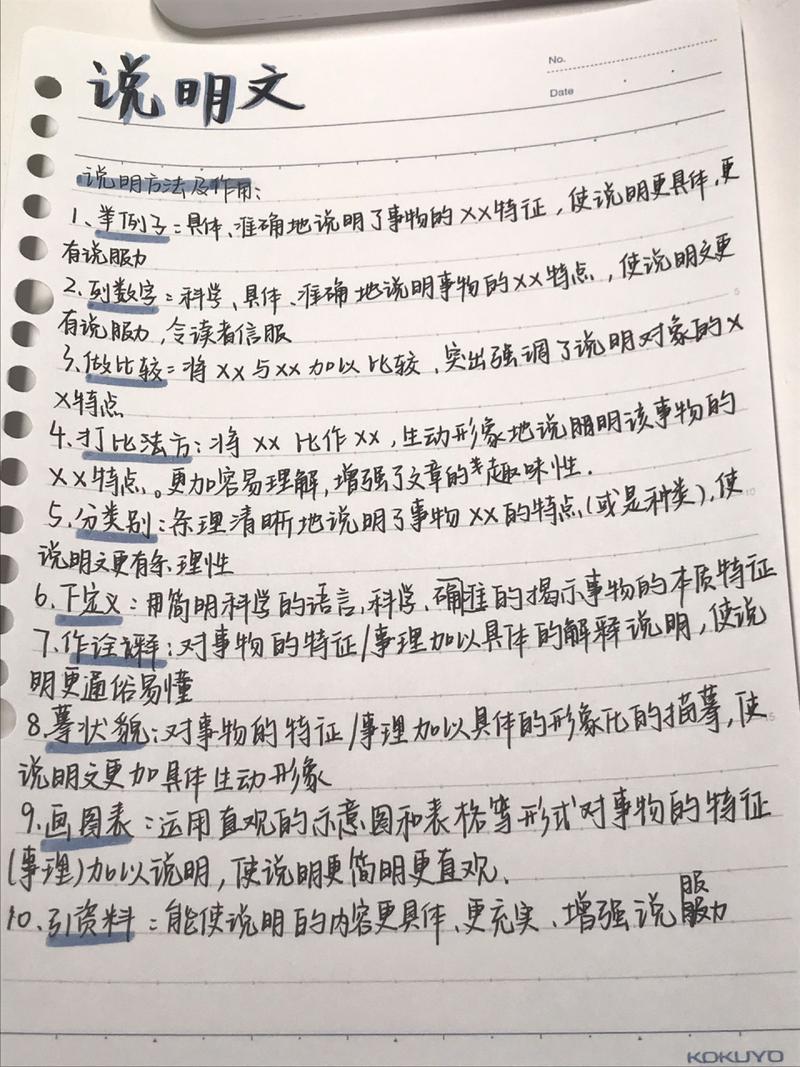 说明文
No.
Date
说明方法及作用:
1、举例子:具体、准确地说明了事物的XX特征，使说明更具体，更
有说服力
2、列数字:科学、具体、准确地说明事物的XX特点，使说明文更
有说服力，令读者信服
3、做比较:将XX与XX加以比较，突出强调了说明对象的X
X特点
4、打比法方:将XX比作XX，生动形象地说明该事物的
XX特点。更加容易理解，增强了文章的趣味性.
5、分类别:条理清晰地说明了事物XX的特点(或是种类)，使
说明文更有条理性
6、下定义:用简明科学的语言，科学、确准的揭示事物的本质特征
7、作诠释:对事物的特征/事理加以具体的解释说明，使说
明更通俗易懂
8、摹状貌:对事物的特征/事理加以具体的形象比的描摹，使
说明文更加具体生动形象
9、画图表:运用直观的示意图和表格等形式对事物的特征
(事理)加以说明，使说明更简明更直观.
10、引资料:能使说明的内容更具体、更充实、增强说服力
KOKUYO